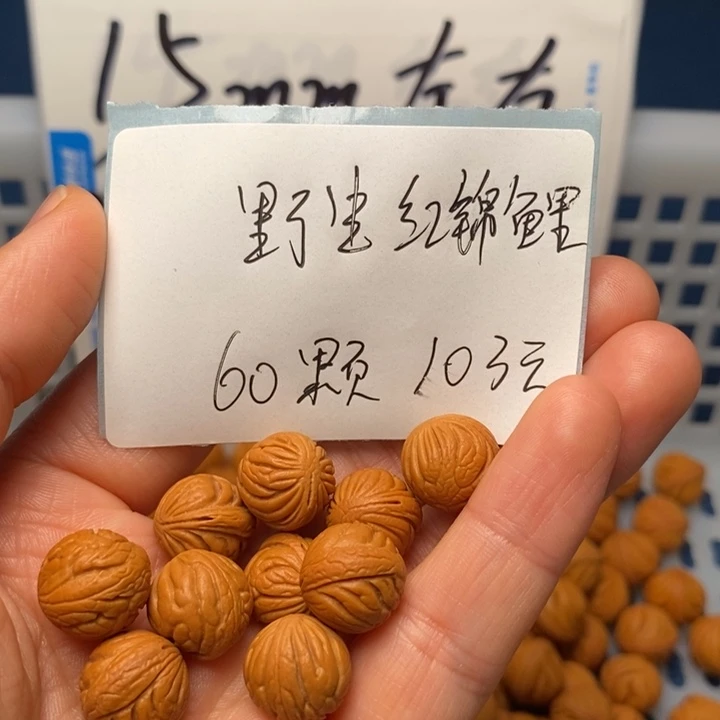 15mm左右
野生红锦鲤
60颗 103元